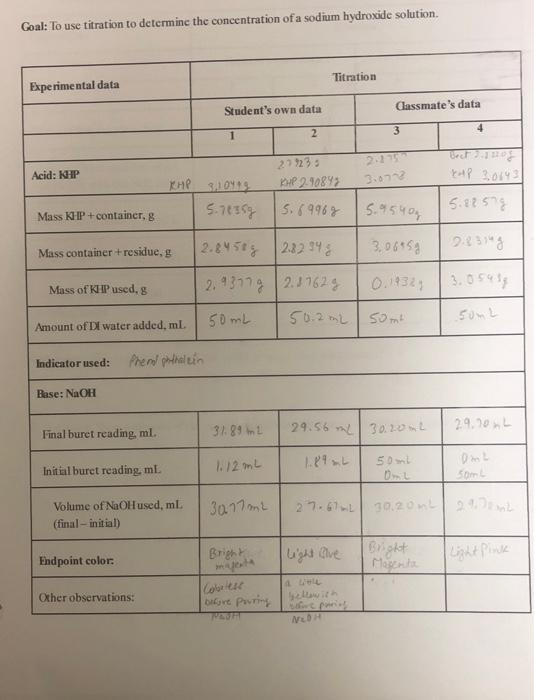 Goal: To use titration to determine the concentration of a sodium hydroxide solution.
Experimental data
Titration
Student's own data
Classmate's data
1 2 3 4
Acid: KHP
KHP 3.1044g
KHP 2.9084g
3.0778
KHP 3.0643
Mass KHP + container, g 5.7835g 5.6996g 5.9540g 5.8857g
Mass container + residue, g 2.8458g 2.8234g 3.0615g 2.8314g
Mass of KHP used, g 2.9377g 2.8762g 0.1932g 3.0543g
Amount of DI water added, mL 50 mL 50.2 mL 50mL 50mL
Indicator used: Phenolphthalein
Base: NaOH
Final buret reading, mL 31.89 mL 29.56 mL 30.20mL 29.70mL
Initial buret reading, mL 1.12 mL 1.89 mL 50mL 0mL
0mL 50mL
Volume of NaOH used, mL 30.77mL 27.67mL 30.20mL 29.70mL
(final – initial)
Endpoint color: Bright light Bright Light Pink
magenta Magenta
Other observations: Colorless a little
before pouring yellowish
NaOH before pouring
NaOH